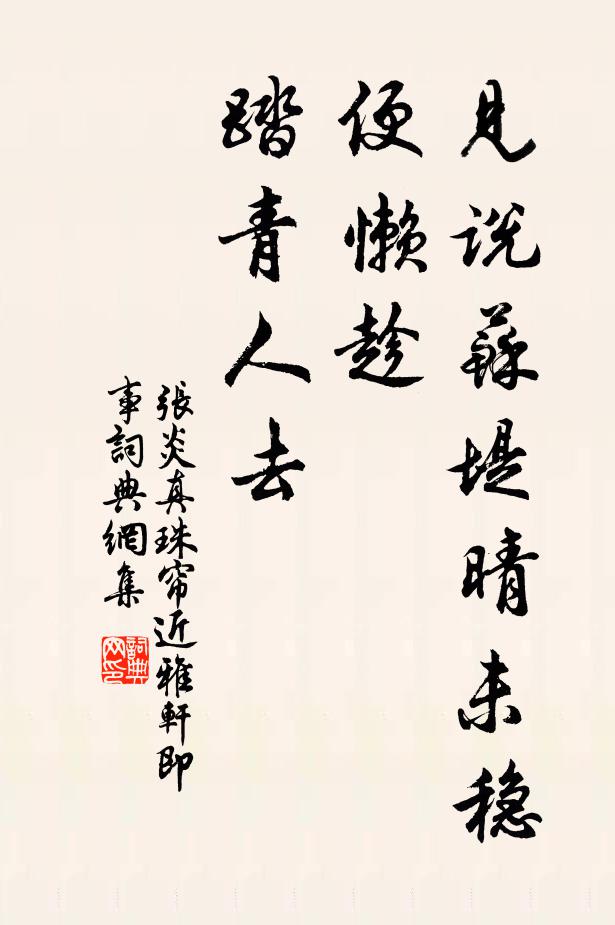 見説蘇堤晴未稳
便懒趁
踏青人去
張炎真珠帘近雅軒即
事詞典網集
詞典网印